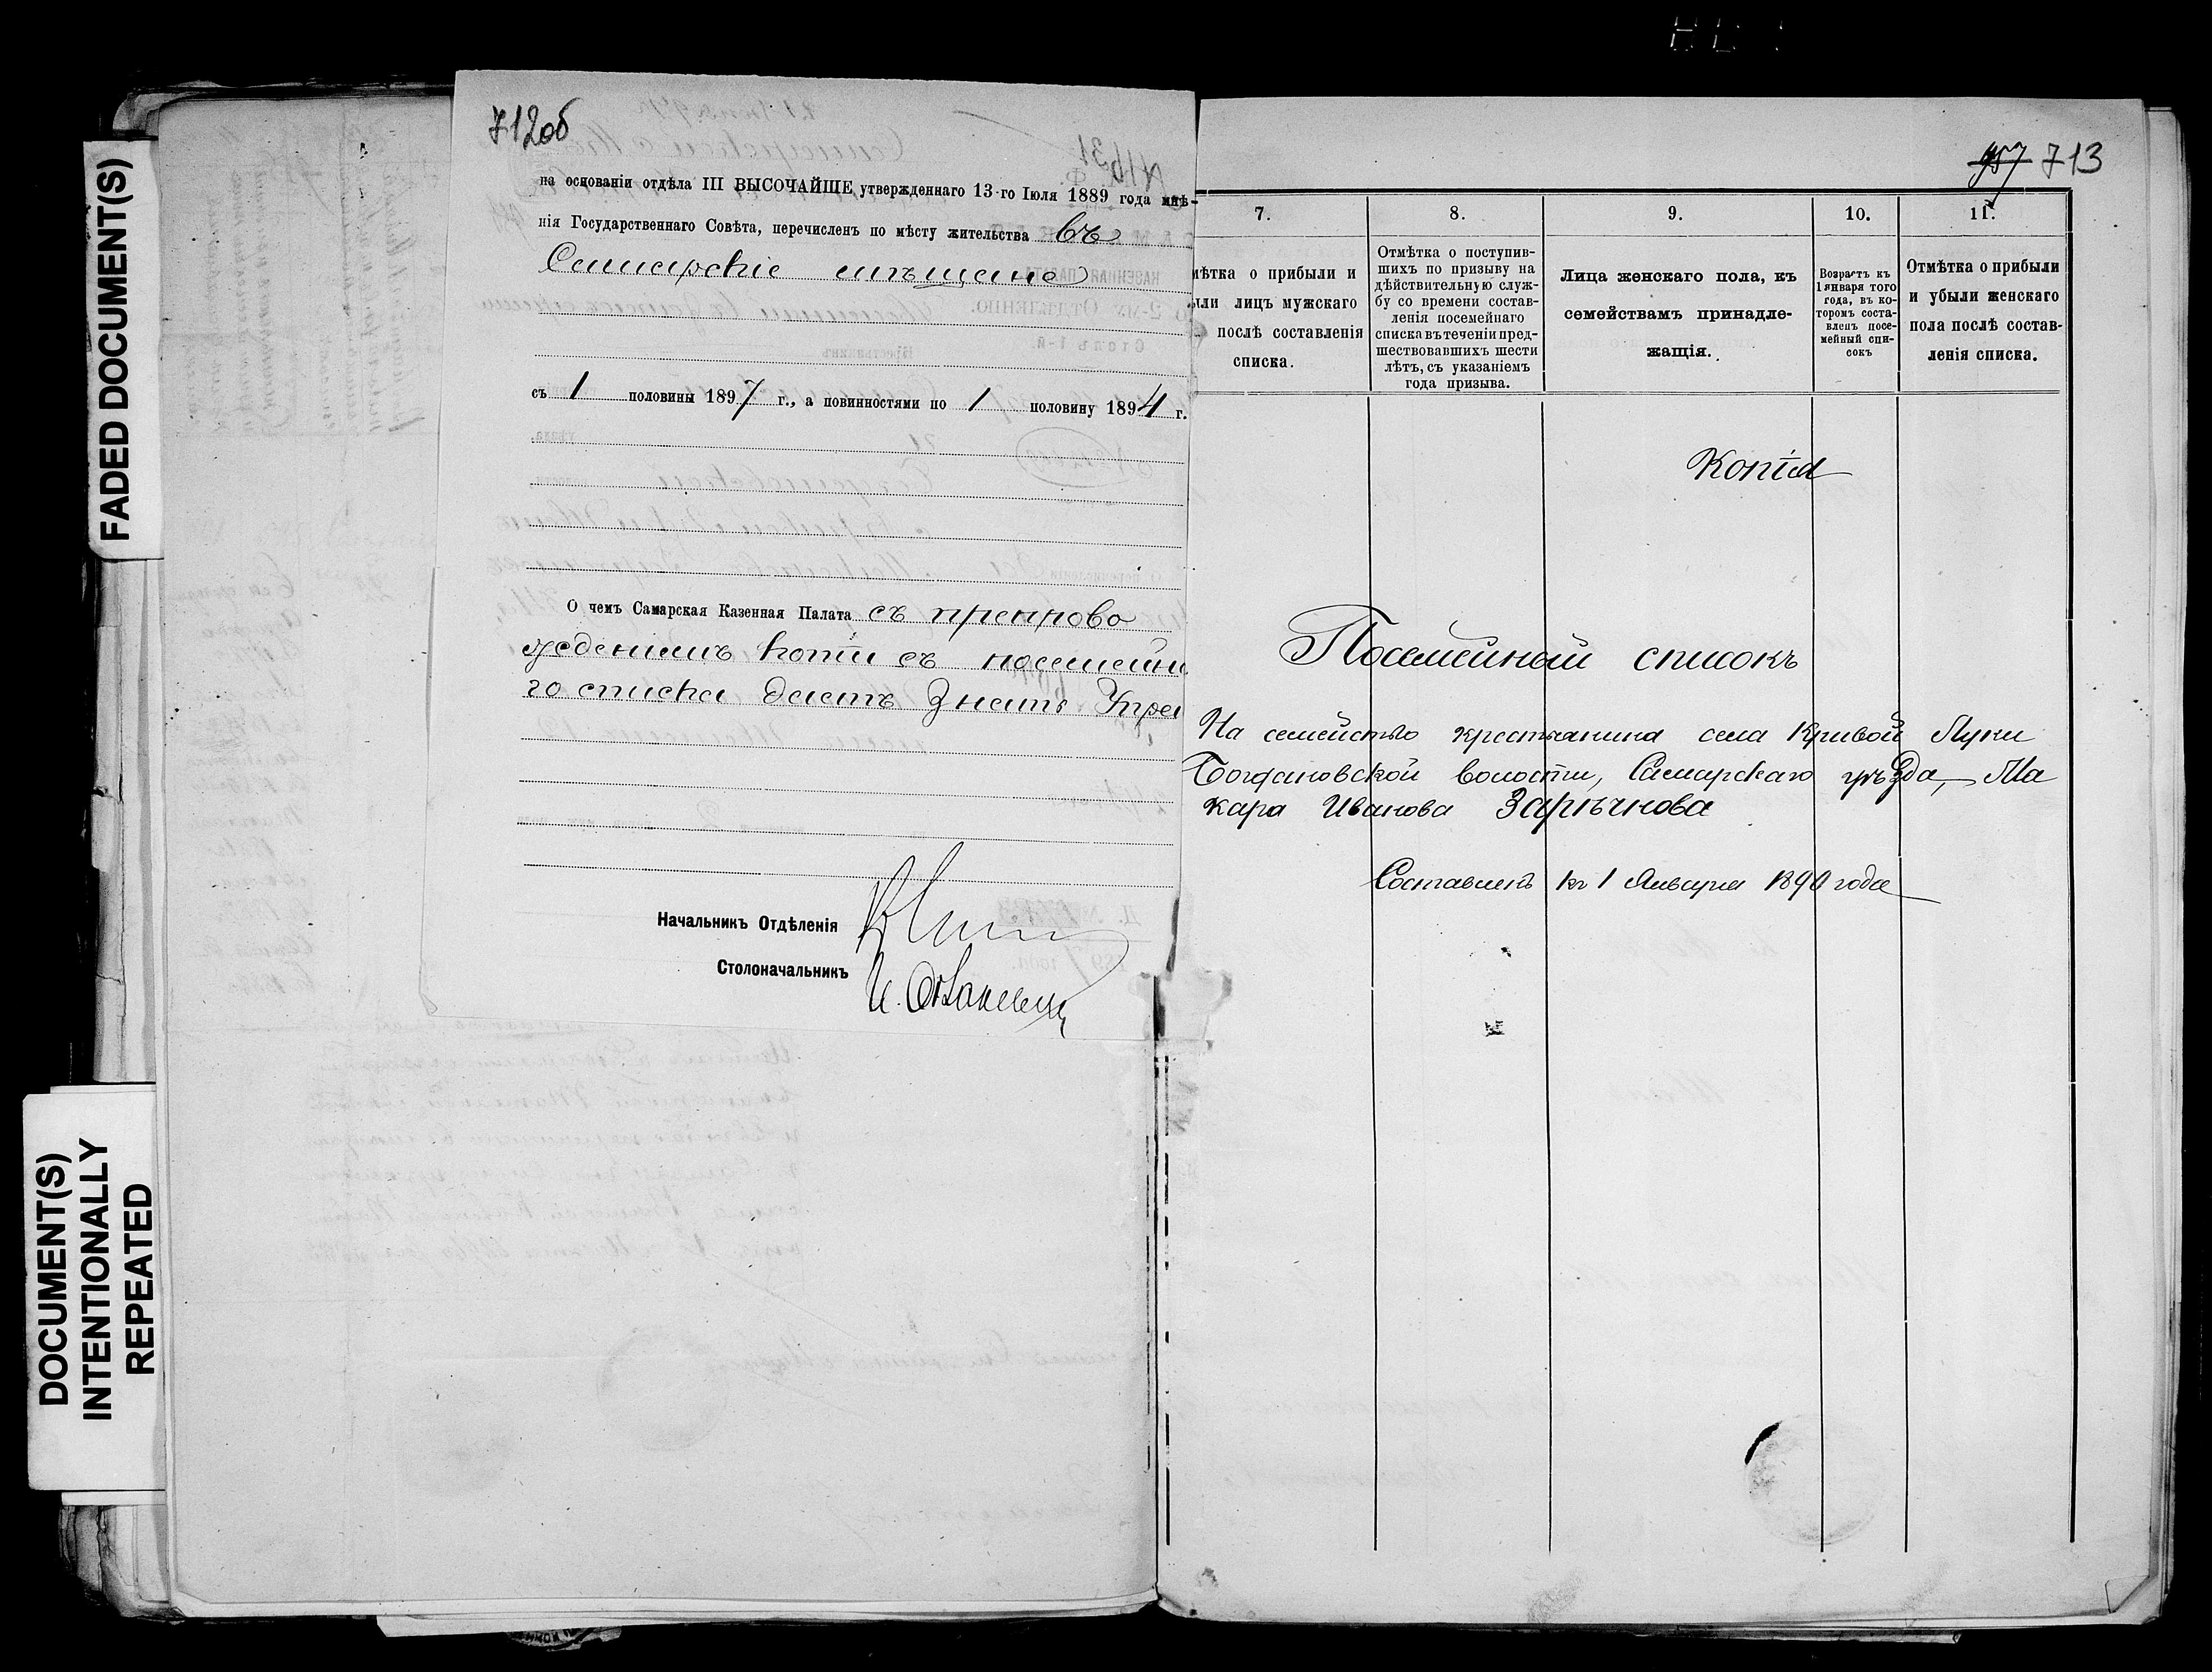 FADED DOCUMENT(S)
DOCUMENT(S)
INTENTIONALLY
REPEATED
712об
на основаніи отдѣла III ВЫСОЧАЙШЕ утвержденнаго 13-го Іюля 1889 года мнѣ-
нія Государственнаго Совѣта, перечисленъ по мѣсту жительства въ
Самарскіе мѣщане
съ 1 половины 1897 г., а повинностями по 1 половину 1894 г.
О чемъ Самарская Казенная Палата съ препрово
жденіемъ копіи съ посемейна
го списка даетъ знать Упра
Начальникъ Отдѣленія
Столоначальникъ
957 713
7. 8. 9. 10. 11.
мѣтка о прибыли и
ыли лицъ мужскаго
послѣ составленія
списка.
Отмѣтка о поступив-
шихъ по призыву на
дѣйствительную служ-
бу со времени состав-
ленія посемейнаго
списка въ теченіи пред-
шествовавшихъ шести
лѣтъ, съ указаніемъ
года призыва.
Лица женскаго пола, къ
семействамъ принадле-
жащія.
Возрастъ къ
1 января того
года, въ ко-
торомъ соста-
вленъ посе-
мейный спи-
сокъ
Отмѣтка о прибыли
и убыли женскаго
пола послѣ состав-
ленія списка.
Копія
Посемейный списокъ
На семейство крестьянина села Кривой Луки
Богдановской волости, Самарскаго уѣзда, Ма
кара Иванова Зарѣчнова
Составленъ къ 1 Января 1890 года